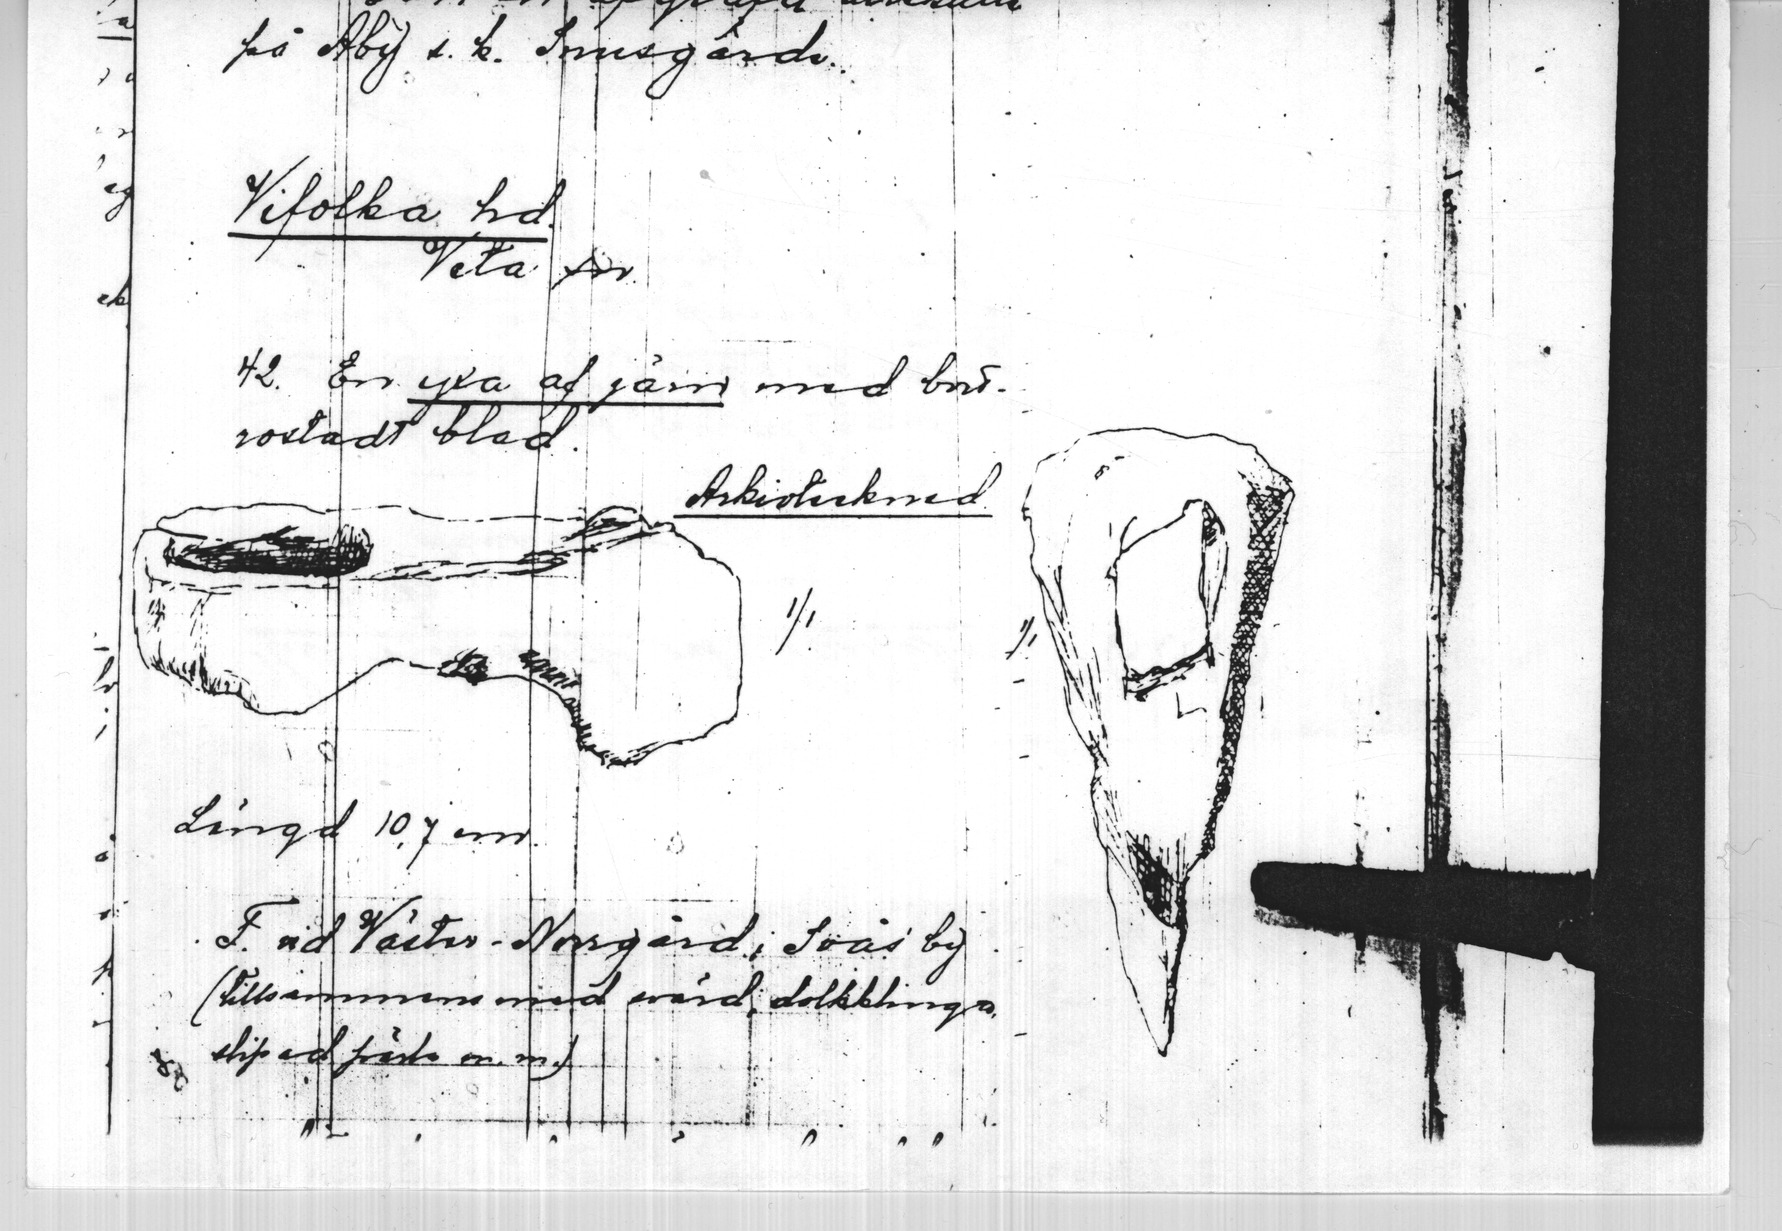 på Åby s. k. Snusgårde.
Vifolka hd.
Veta sn
42. En yxa af järn med bort-
rostadt blad.
Arkivtecknad
1/1
1/1
Längd 10,7 cm
F. vid Väster-Norrgård, Svås by
(tillsammans med svärd, dolkklinga,
slipad pärla m. m.)